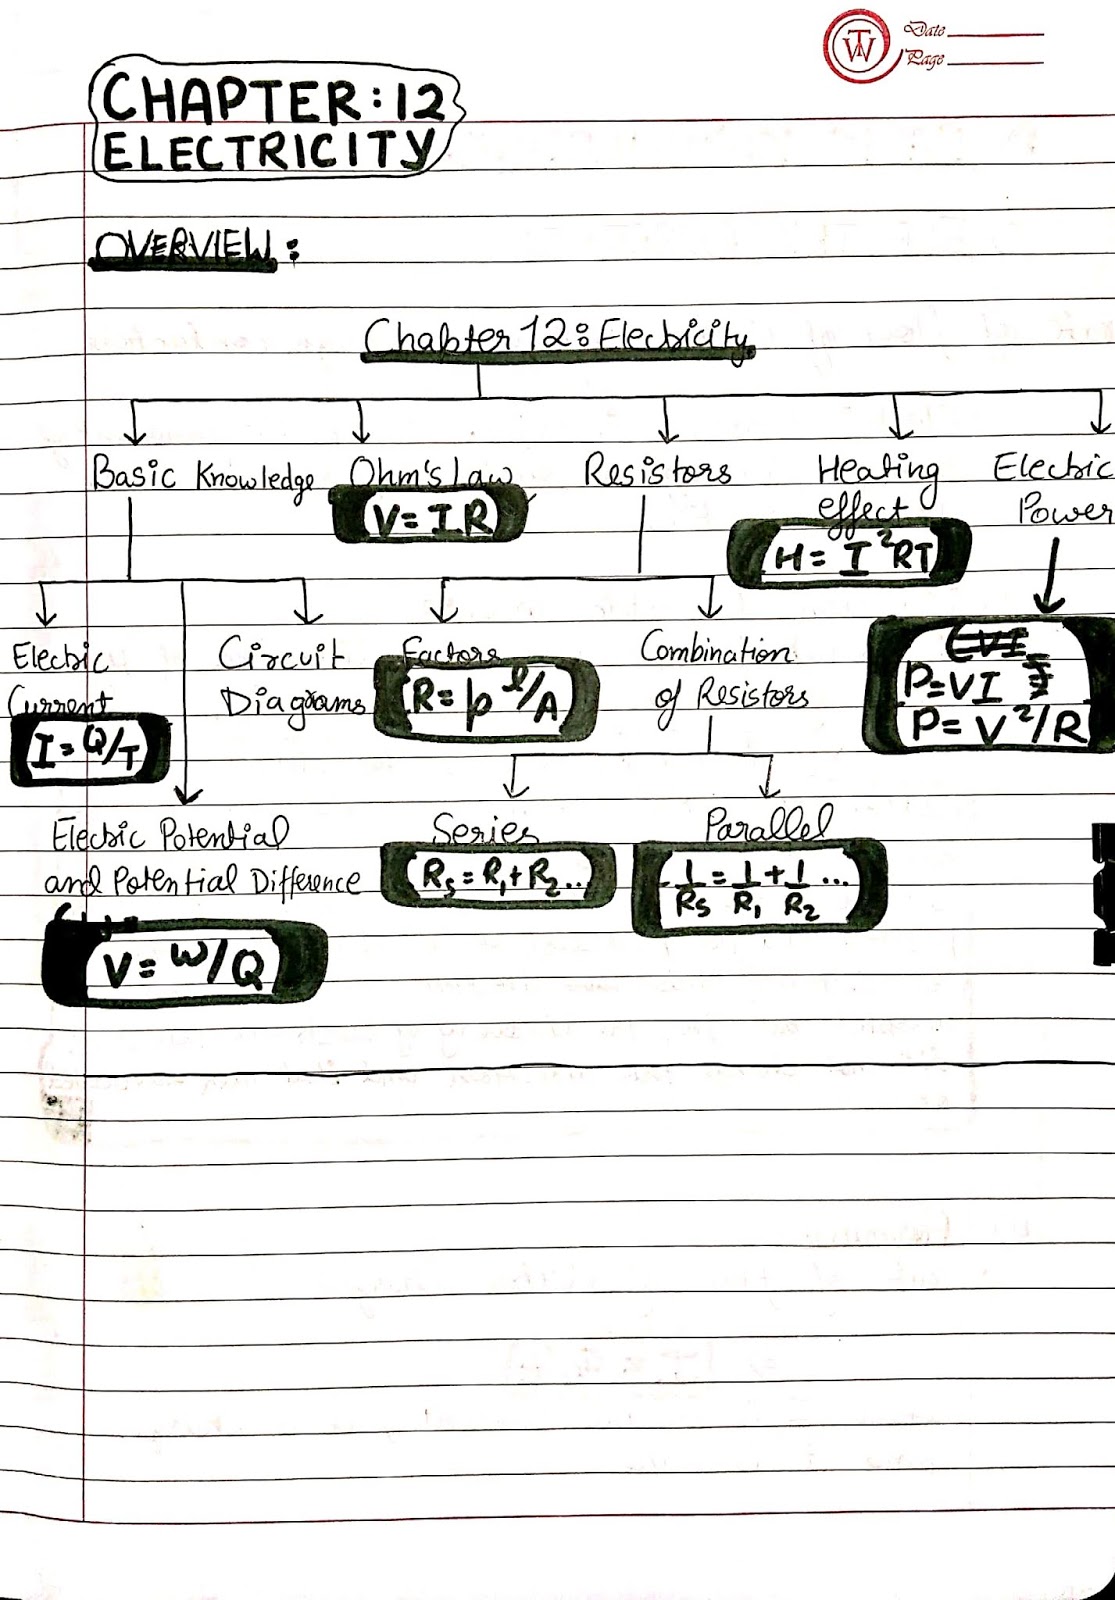 TW
Date
Page
CHAPTER:12
ELECTRICITY
OVERVIEW:
Chapter 12: Electricity
Basic Knowledge
Ohm's Law
V=IR
Resistors
Heating
effect
H = I²RT
Electric
Power
P=VI
P= V²/R
Electric
Current
I = Q/T
Circuit
Diagrams
Factors
R= ρ l/A
Combination
of Resistors
Electric Potential
and Potential Difference
V= W/Q
Series
Rs = R₁ + R₂...
Parallel
1/Rs = 1/R₁ + 1/R₂ ...